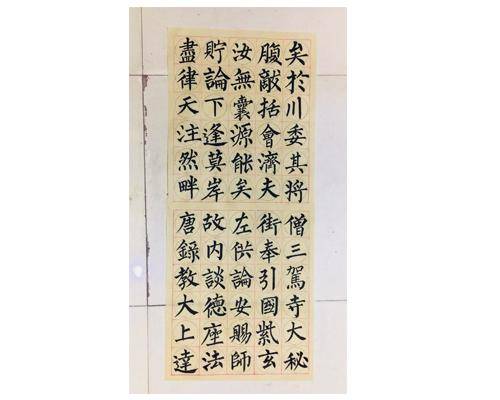 盡貯汝腹矣
律論無敵於
天下囊括川
注逢源會委
然莫能濟其
畔岸矣夫將
唐故左街僧
錄內供奉三
教談論引駕
大德安國寺
上座賜紫大
達法師玄秘